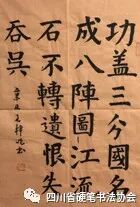 功盖三今國名
成八陣圖江流
石不轉遺恨失
吞吴
四川省硬笔书法协会